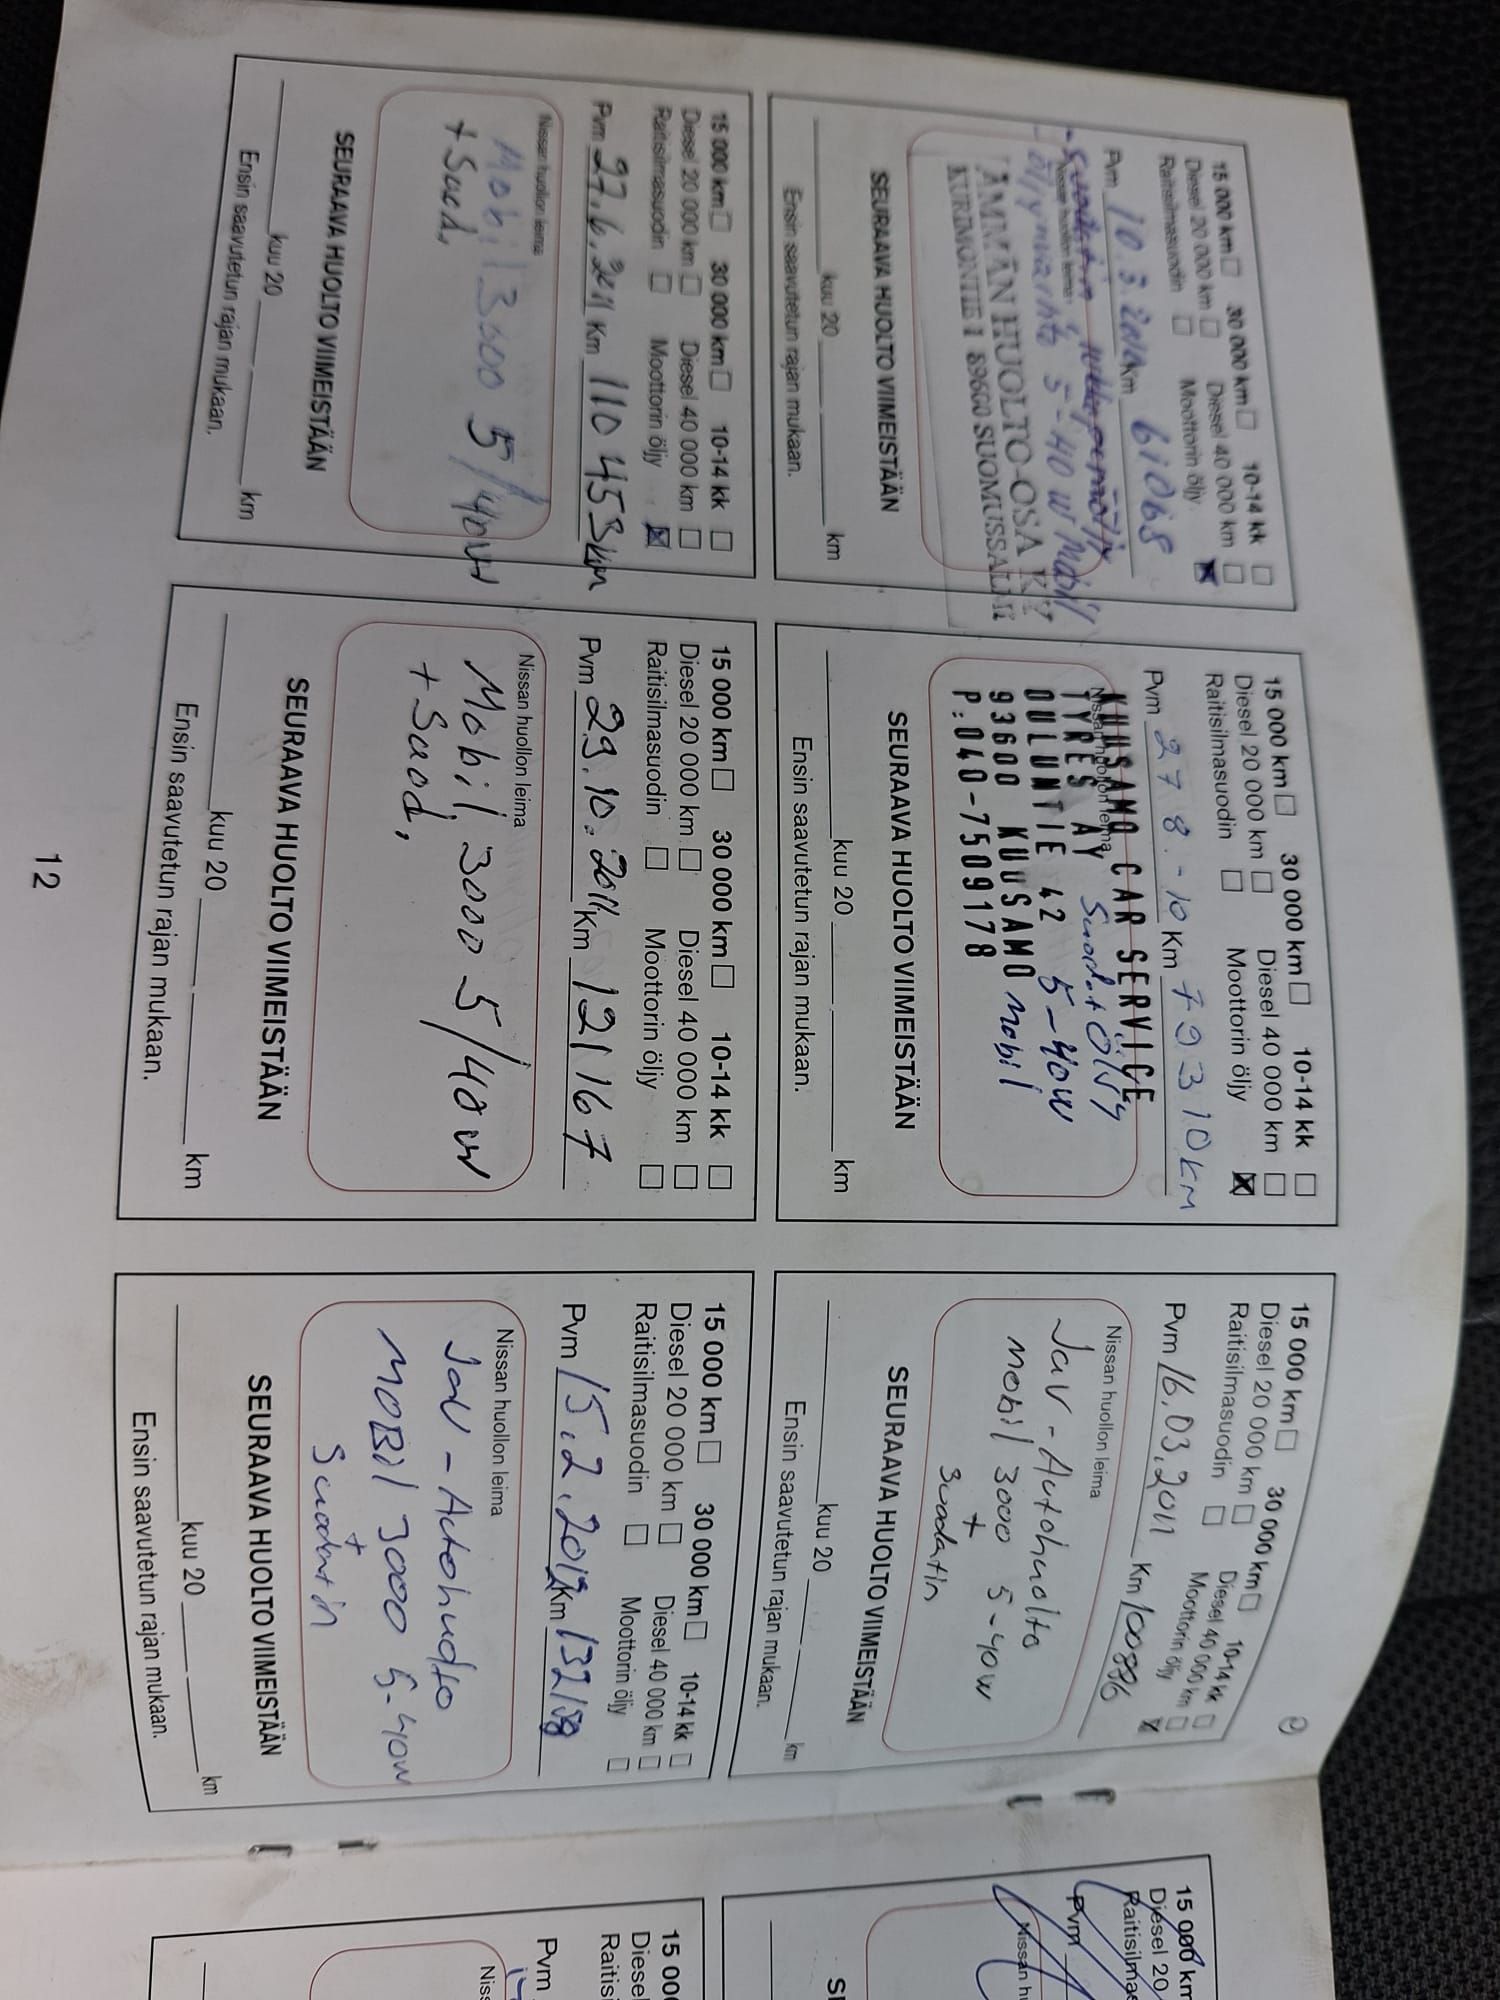 15 000 km 30 000 km 10-14 kk
Diesel 20 000 km Diesel 40 000 km
Raitisilmasuodin Moottorin öljy
Pvm 10.3.2010 km 61068
Nissan huollon leima
- suodatin
- öljynvaihto 5-40 W Mobil
ÄMMÄN HUOLTO-OSA KY
KURIMONTIE 1 89600 SUOMUSSALMI
SEURAAVA HUOLTO VIIMEISTÄÄN
kuu 20 km
Ensin saavutetun rajan mukaan.
15 000 km 30 000 km 10-14 kk
Diesel 20 000 km Diesel 40 000 km
Raitisilmasuodin Moottorin öljy
Pvm 27 8.-10 Km 79310 KM
Nissan huollon leima
KUUSAMO CAR SERVICE
TYRES AY Suodat Öljy
OULUNTIE 42 5-40W
93600 KUUSAMO Mobil
P:040-7509178
SEURAAVA HUOLTO VIIMEISTÄÄN
kuu 20 km
Ensin saavutetun rajan mukaan.
15 000 km 30 000 km 10-14 kk
Diesel 20 000 km Diesel 40 000 km
Raitisilmasuodin Moottorin öljy
Pvm 16.03.2011 Km 100886
Nissan huollon leima
JaV-Autohuolto
Mobil 3000 5-40W
+
Suodatin
SEURAAVA HUOLTO VIIMEISTÄÄN
kuu 20 km
Ensin saavutetun rajan mukaan.
15 000 km 30 000 km 10-14 kk
Diesel 20 000 km Diesel 40 000 km
Raitisilmasuodin Moottorin öljy
Pvm 27.6.2011 Km 110 453 km
Nissan huollon leima
Mobil 3000 5/40W
+ Suod.
SEURAAVA HUOLTO VIIMEISTÄÄN
kuu 20 km
Ensin saavutetun rajan mukaan.
15 000 km 30 000 km 10-14 kk
Diesel 20 000 km Diesel 40 000 km
Raitisilmasuodin Moottorin öljy
Pvm 29.10.2011 Km 121 167
Nissan huollon leima
Mobil 3000 5/40W
+ Suod,
SEURAAVA HUOLTO VIIMEISTÄÄN
kuu 20 km
Ensin saavutetun rajan mukaan.
15 000 km 30 000 km 10-14 kk
Diesel 20 000 km Diesel 40 000 km
Raitisilmasuodin Moottorin öljy
Pvm 15.2.2012 Km
Nissan huollon leima
JaV-Autohuolto
MOBil 3000 5-40W
+
Suodatin
SEURAAVA HUOLTO VIIMEISTÄÄN
kuu 20 km
Ensin saavutetun rajan mukaan.
12
15 000 km
Diesel 20
Raitisilmas
Pvm
Nissan hu
SE
15 00
Diesel
Raitisi
Pvm
Niss